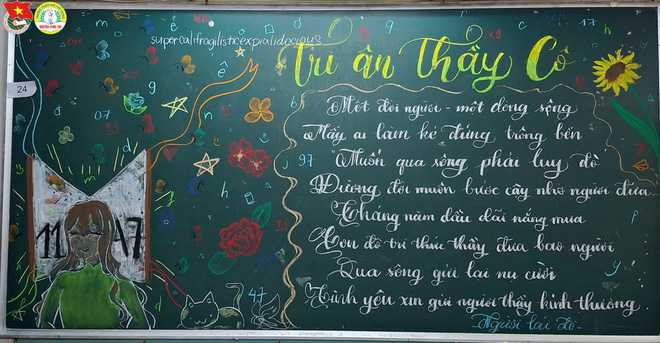 supercalifragilisticexpialidocious
Tri ân Thầy Cô
24
Một đời người - một dòng sông
Mấy ai làm kẻ đứng trông bến
Muốn qua sông phải lụy đò
Đường đời muôn bước cậy nhờ người đưa...
Tháng năm dầu dãi nắng mưa
Con đò trí thức thầy đưa bao người
Qua sông gửi lại nụ cười
Tình yêu xin gửi người thầy kính thương
- Người lái đò -
11 A7
07
97
47
17